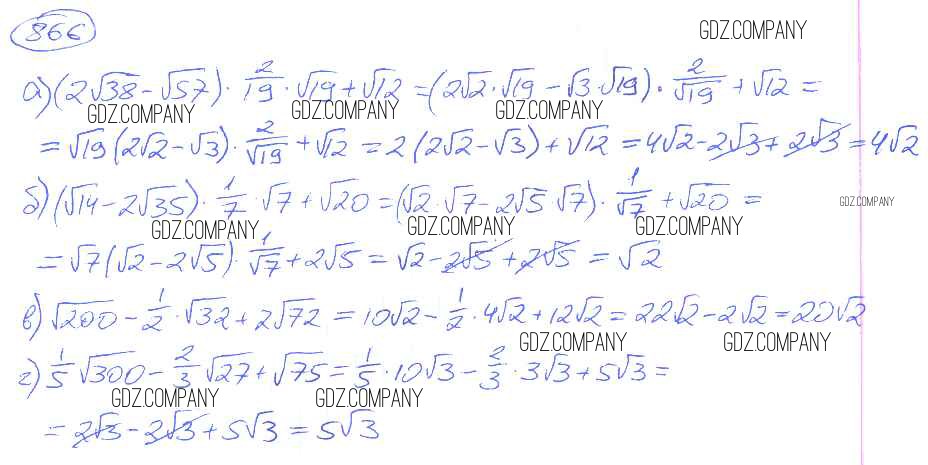 866
GDZ.COMPANY
а) (2√38 − √57) · 2/19 · √19 + √12 = (2√2 · √19 − √3 · √19) · 2/√19 + √12 =
GDZ.COMPANY GDZ.COMPANY GDZ.COMPANY
= √19 (2√2 − √3) · 2/√19 + √12 = 2 (2√2 − √3) + √12 = 4√2 − 2√3 + 2√3 = 4√2
б) (√14 − 2√35) · 1/7 · √7 + √20 = (√2 · √7 − 2√5 √7) · 1/√7 + √20 =
GDZ.COMPANY
GDZ.COMPANY GDZ.COMPANY GDZ.COMPANY
= √7 (√2 − 2√5) · 1/√7 + 2√5 = √2 − 2√5 + 2√5 = √2
в) √200 − 1/2 · √32 + 2√72 = 10√2 − 1/2 · 4√2 + 12√2 = 22√2 − 2√2 = 20√2
GDZ.COMPANY GDZ.COMPANY
г) 1/5 √300 − 2/3 √27 + √75 = 1/5 · 10√3 − 2/3 · 3√3 + 5√3 =
GDZ.COMPANY GDZ.COMPANY
= 2√3 − 2√3 + 5√3 = 5√3